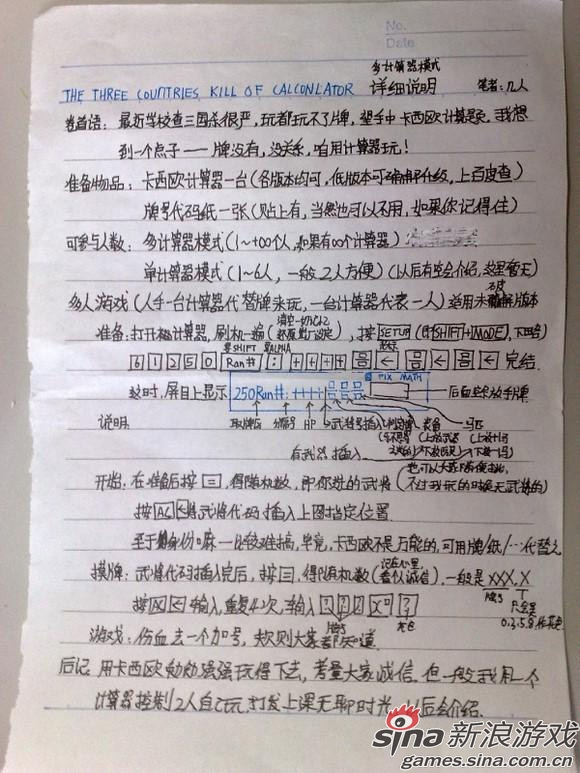 No.
Date
多计算器模式
THE THREE COUNTRIES KILL OF CALCONLATOR 详细说明 笔者:几人
卷首语:最近学校查三国杀很严,玩都玩不了牌,望手中卡西欧计算器,我想
到一个点子——牌没有,没关系,咱用计算器玩!
准备物品:卡西欧计算器一台(各版本均可,低版本可 升级,上百度查)
牌号代码纸一张(贴上有,当然也可以不用,如果你记得住)
可参与人数:多计算器模式(1~+∞个人,如果有∞个计算器)
单计算器模式(1~6人,一般2人方便)(以后有空会介绍,这里暂无)
多人游戏(人手一台计算器代替牌来玩,一台计算器代表一人)适用未破解版本
准备:打开 计算器,刷机一遍(清空一切记忆 还原出厂设定),按SETUP(即SHIFT+MODE),下田
要SHIFT 要ALPHA
6 1 2 5 0 Ran# : + + + + 昌 ← 昌 ← 昌 ← 完结.
这时,屏目上显示 250Ran#:++++ FIX MATH 后面空放手牌
说明: 取牌区 分隔号 HP 武将号插入 判定牌 装备 马匹
有武器,插入
开始:在准备后按=,得随机数,即你选的武将(也可以大家 不过我玩的时候无武将的)
按AC←将武将代码插入上图指定位置.
至于身份嘛——比较难搞,毕竟,卡西欧不是万能的,可用牌/纸/…代替之
摸牌:武将代码插入完后,按=,得随机数(记在心里,看你诚信),一般是XXX.X
牌号 只会是
按AC←输入,重复4次,每输入 ? ? ? X° ? 0.3.5.8.代花色
牌号 花色
游戏:伤血去一个加号,其规则大家都知道.
后记:用卡西欧勉勉强强玩得下去,考量大家诚信.但一般我用一个
计算器控制2人自己玩,打发上课无聊时光,以后会介绍.
sina 新浪游戏
games.sina.com.cn